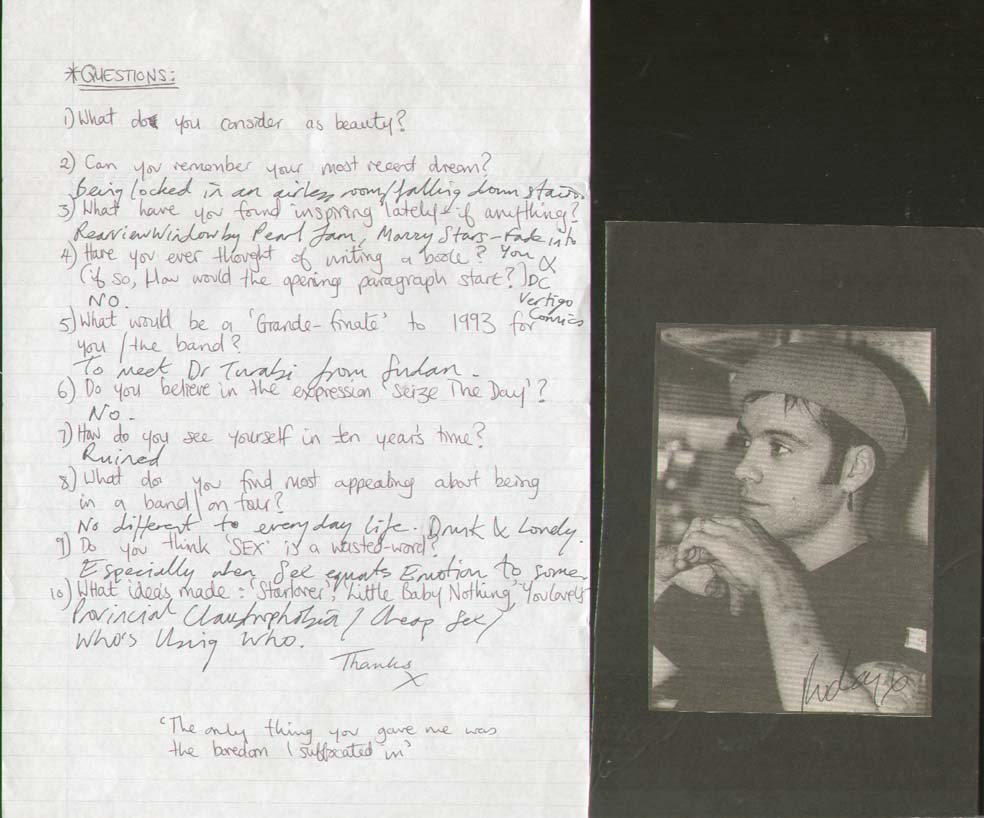 *QUESTIONS:
1) What do you consider as beauty?
2) Can you remember your most recent dream?
Being locked in an airless room/falling down stairs.
3) What have you found inspiring lately - if anything?
RearviewWindow by Pearl Jam, Mazzy Stars - Fade into
You &
DC
Vertigo
Comics
4) Have you ever thought of writing a book?
(if so, How would the opening paragraph start?)
NO.
5) What would be a 'Grande-finale' to 1993 for
you / the band?
To meet Dr Turabi from Sudan.
6) Do you believe in the expression 'Seize The Day'?
No.
7) How do you see yourself in ten year's time?
Ruined
8) What do you find most appealing about being
in a band / on tour?
No different to everyday life. Drunk & Lonely.
9) Do you think 'SEX' is a wasted-word?
Especially when Sex equats Emotion to some
10) What ideas made: 'Starlover', 'Little Baby Nothing', 'You lovely
Provincial Claustrophobia / Cheap Sex /
Who's Using Who.
Thanks
X
'The only thing you gave me was
the boredom I suffocated in'